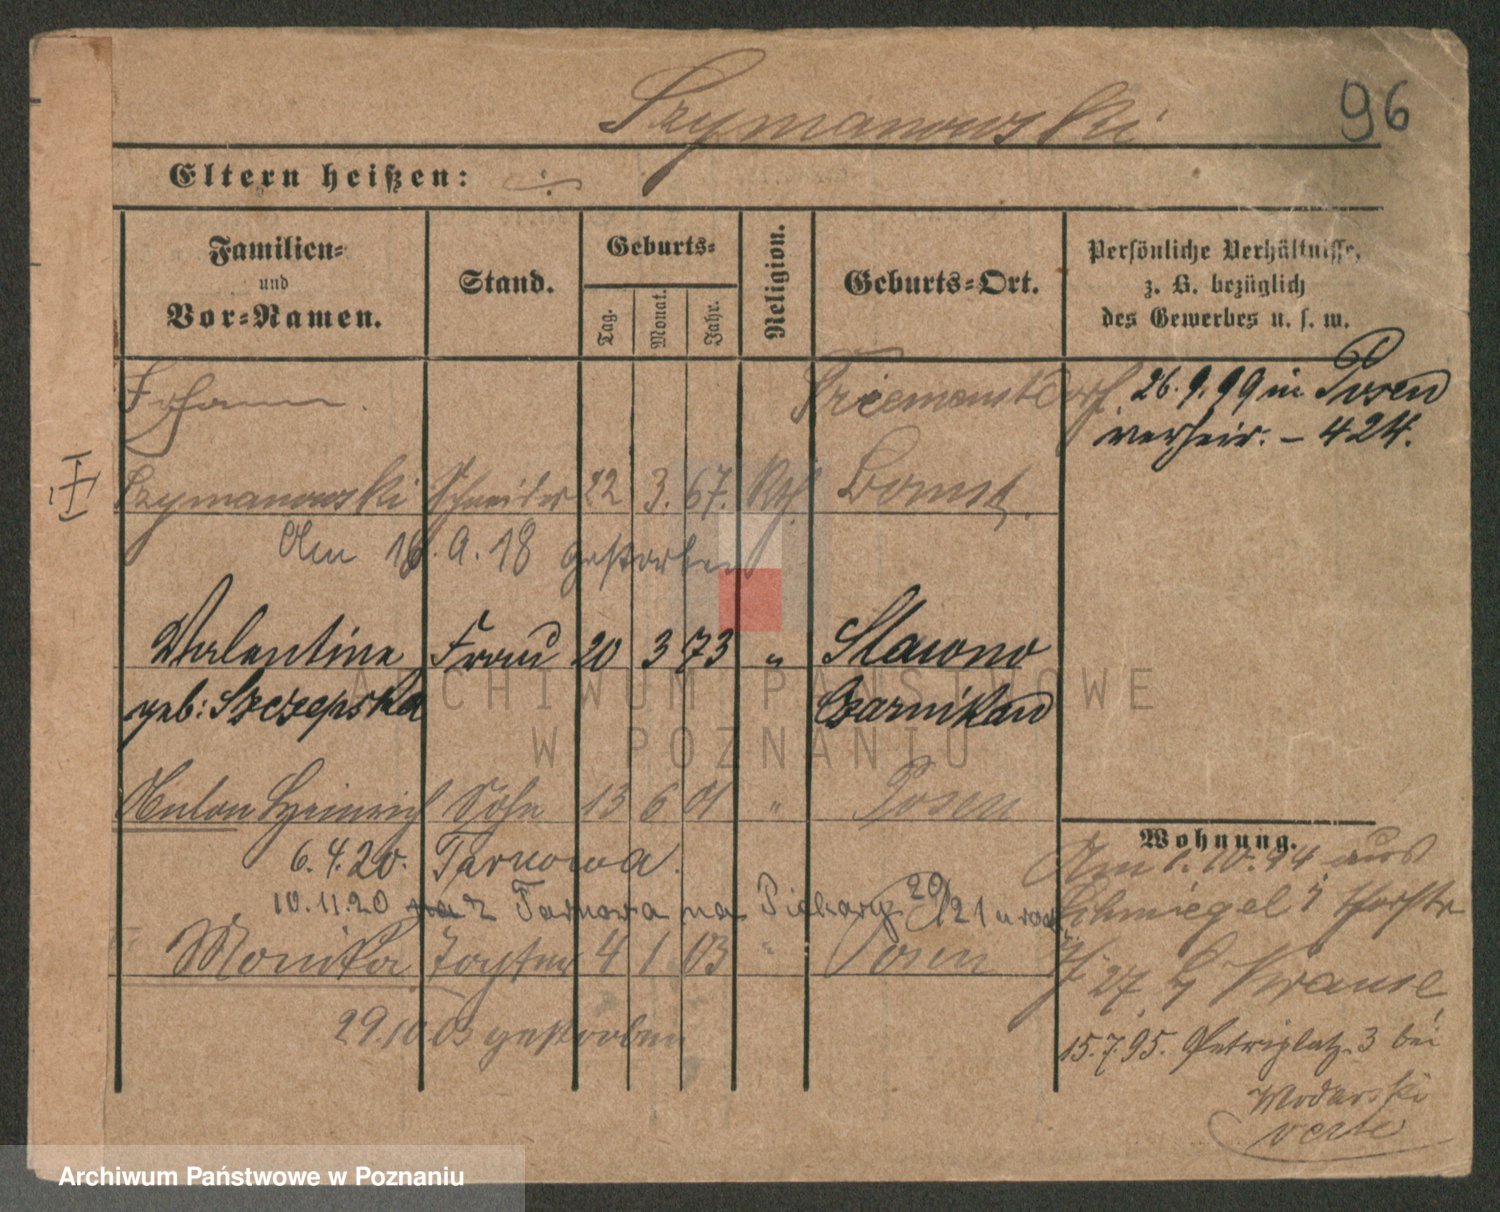 Szymanowski
96
Eltern heißen:
Familien-
und
Vor-Namen.
Stand.
Geburts-
Tag.
Monat.
Jahr.
Religion.
Geburts-Ort.
Persönliche Verhältnisse,
z. B. bezüglich
des Gewerbes u. s. w.
Johann
Priementdorf
26.9.99 in Posen
verheir. – 424.
Szymanowski Schneider 22 3. 67. Kth. Bomst.
Am 16.9.18 gestorben
Valentine Frau 20 3 73 " Slawno
geb: Szczepska Czarnikau
Anton Heinrich Sohn 13 6 01 " Posen
Wohnung.
6.4.20. Tarnowa.
Am 1.10.94 aus
10.11.20 z Tarnowa na Piekary 20/21
Schmiegel
Monika Tochter 4 1 03 " Posen
27 Krause
29.10.03 gestorben
15.7.95. Petriplatz 3 bei
Wodarski
verte
ARCHIWUM PAŃSTWOWE
W POZNANIU
Archiwum Państwowe w Poznaniu